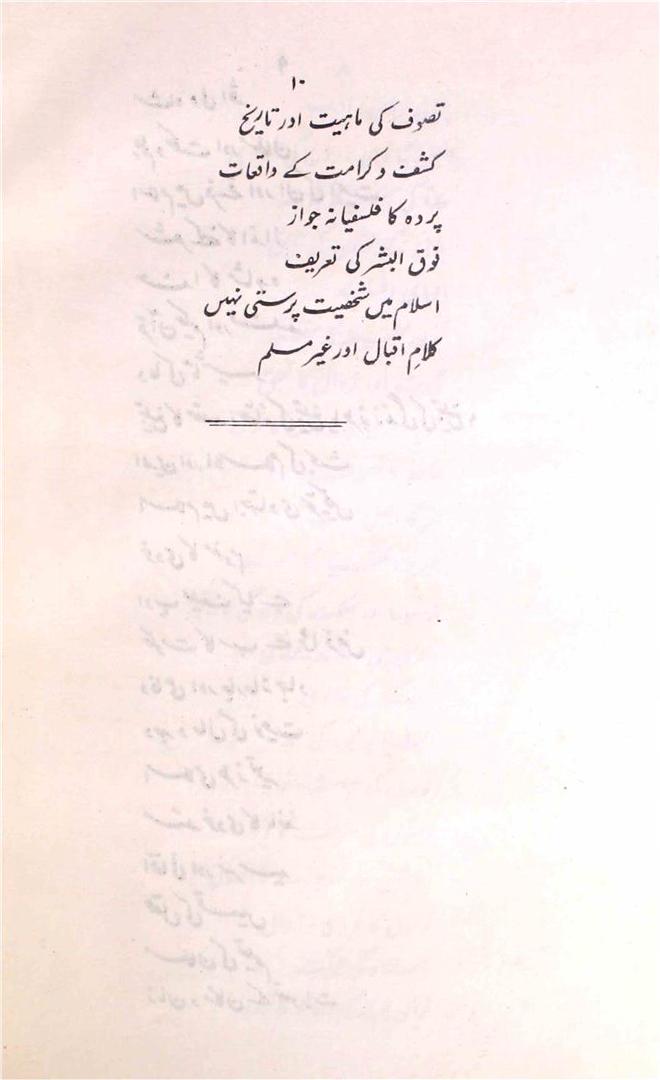 ۱۰
تصوف کی ماہیت اور تاریخ
کشف و کرامت کے واقعات
پردہ کا فلسفیانہ جواز
فوق البشر کی تعریف
اسلام میں شخصیت پرستی نہیں
کلامِ اقبال اور غیر مسلم